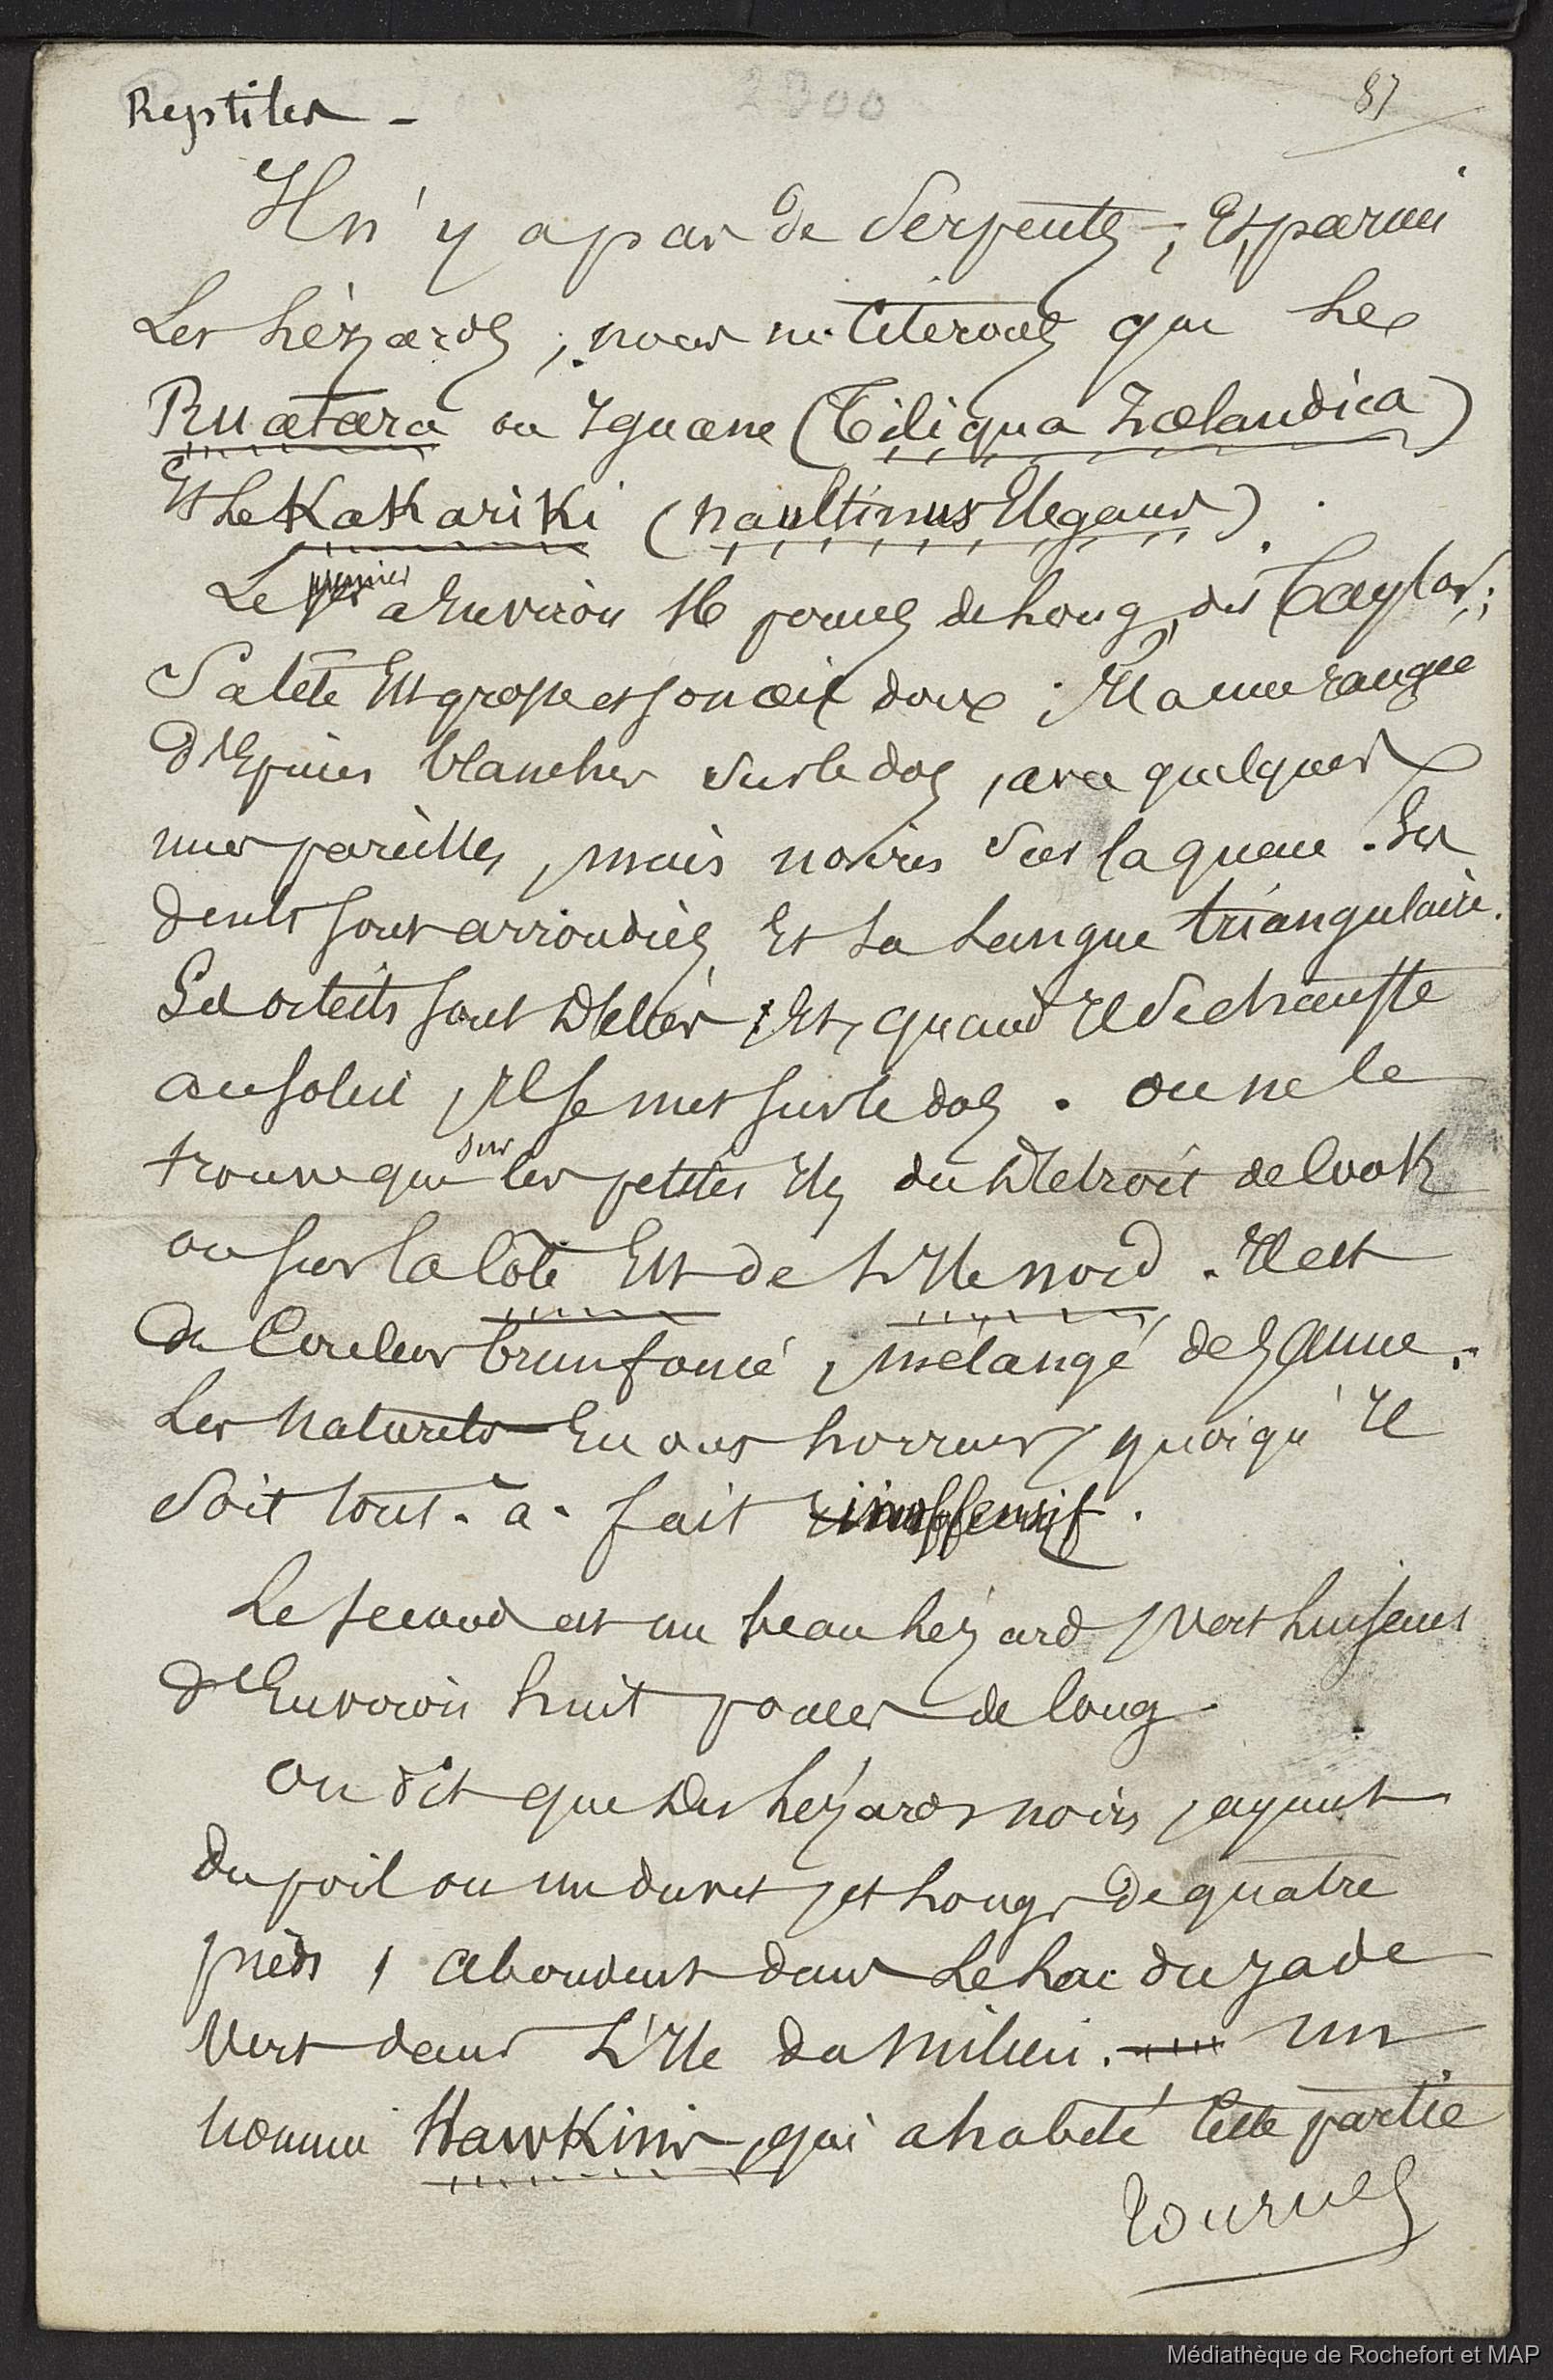 Reptiles -
2900
87
Il n'y a pas de Serpents ; Et, parmi
Les Lézards, nous ne Citerons que Le
Ruatara ou Iguane (Tiliqua Zælandica)
Et Le Kakariki (naultinus Elegans).
Le premier a Environ 16 pouces de Long, dit Taylor ;
Sa tête Est grosse et son œil doux ; Il a une rangée
d'Epines blanches sur le dos, avec quelques
unes pareilles, mais noires sur la queue. Ses
dents sont arrondies Et sa Langue triangulaire.
Ses orteils sont Déliés ; Et, quand Il se chauffe
au soleil, Il se met sur le dos. on ne le
trouve que sur les petites Iles du Détroit de Cook
ou sur la Côte Est de L'Ile nord. Il est
de Couleur brun foncé, mélangé de Jaune.
Les Naturels En ont horreur, quoiqu'Il
soit tout-à-fait inoffensif.
Le second est un beau Lézard, vert Luisant
d'Environ huit pouces de long
on dit que Des Lézards noirs, ayant
du poil ou un duvet, et Longs de quatre
pieds, abondent dans Le Lac du Jade
Vert dans L'Ile du Milieu. un
nommé Hawkins, qui a habité Cette partie
Tournez
Médiathèque de Rochefort et MAP